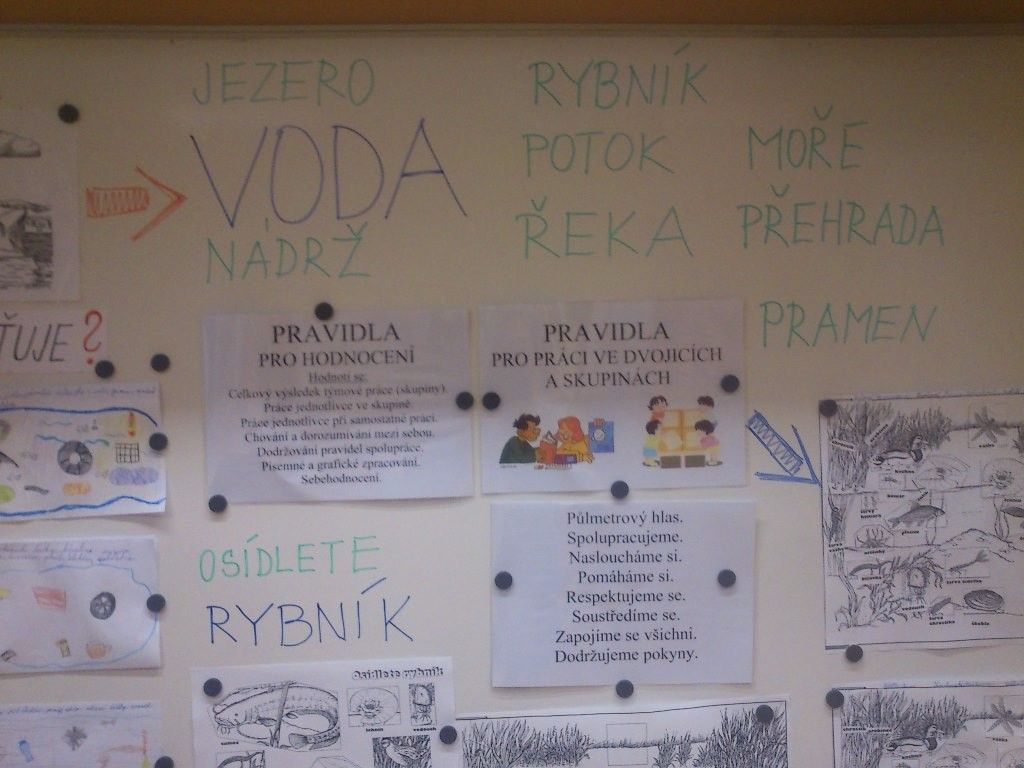 JEZERO
RYBNÍK
VODA
POTOK
MOŘE
NÁDRŽ
ŘEKA
PŘEHRADA
PRAMEN
ŤUJE?
PRAVIDLA
PRO HODNOCENÍ
Hodnotí se:
Celkový výsledek týmové práce (skupiny).
Práce jednotlivce ve skupině.
Práce jednotlivce při samostatné práci.
Chování a dorozumívání mezi sebou.
Dodržování pravidel spolupráce.
Písemné a grafické zpracování.
Sebehodnocení.
PRAVIDLA
PRO PRÁCI VE DVOJICÍCH
A SKUPINÁCH
Půlmetrový hlas.
Spolupracujeme.
Nasloucháme si.
Pomáháme si.
Respektujeme se.
Soustředíme se.
Zapojíme se všichni.
Dodržujeme pokyny.
OSÍDLETE
RYBNÍK
Osídlete rybník